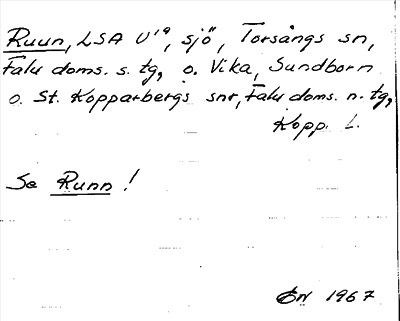 Ruun, LSA U¹⁹, sjö, Torsångs sn,
Falu doms. s. tg, o. Vika, Sundborn
o. St. Kopparbergs snr, Falu doms. n. tg,
Kopp. L.
Se Runn!
ÖN 1967